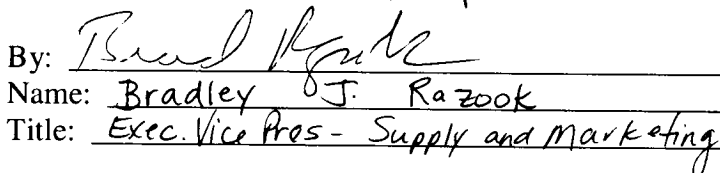 By: Brad Razook
Name: Bradley J. Razook
Title: Exec. Vice Pres - Supply and Marketing